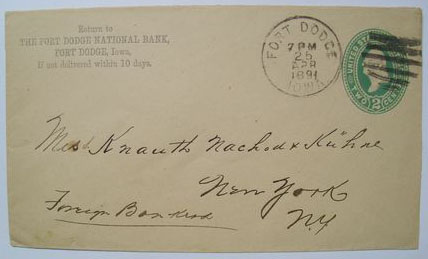 Return to
THE FORT DODGE NATIONAL BANK,
FORT DODGE, Iowa,
If not delivered within 10 days.
FORT DODGE
7 PM
25
APR
1891
IOWA
UNITED STATES
TWO 2 CENTS
Mess Knauth Nachod & Kühne
New York
N.Y
Foreign Bankers